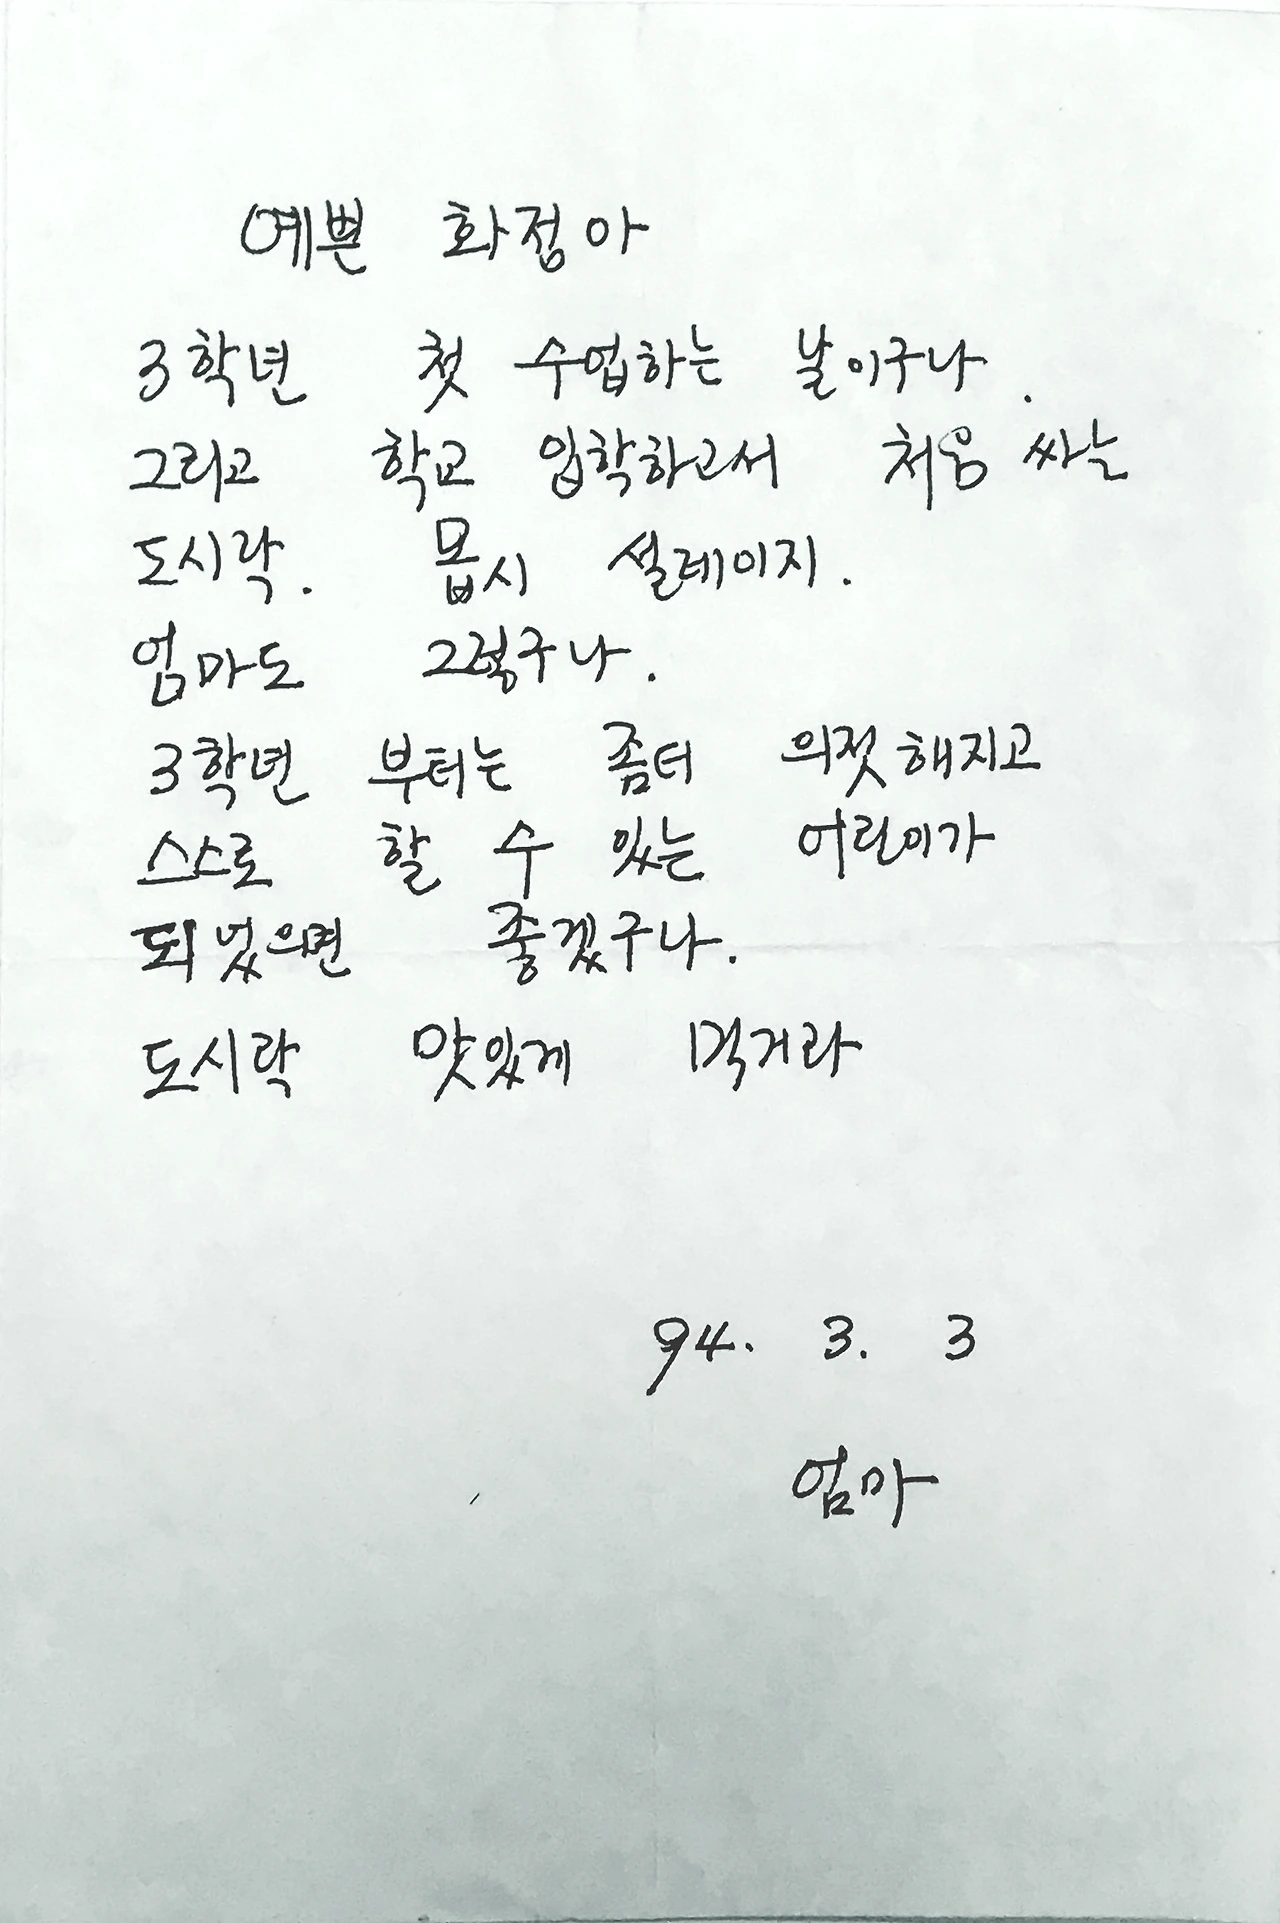 예쁜 화정아
3학년 첫 수업하는 날이구나.
그리고 학교 입학하고서 처음 싸는
도시락. 몹시 설레이지.
엄마도 그렇구나.
3학년 부터는 좀더 의젓해지고
스스로 할 수 있는 어린이가
되었으면 좋겠구나.
도시락 맛있게 먹거라
94. 3. 3
엄마